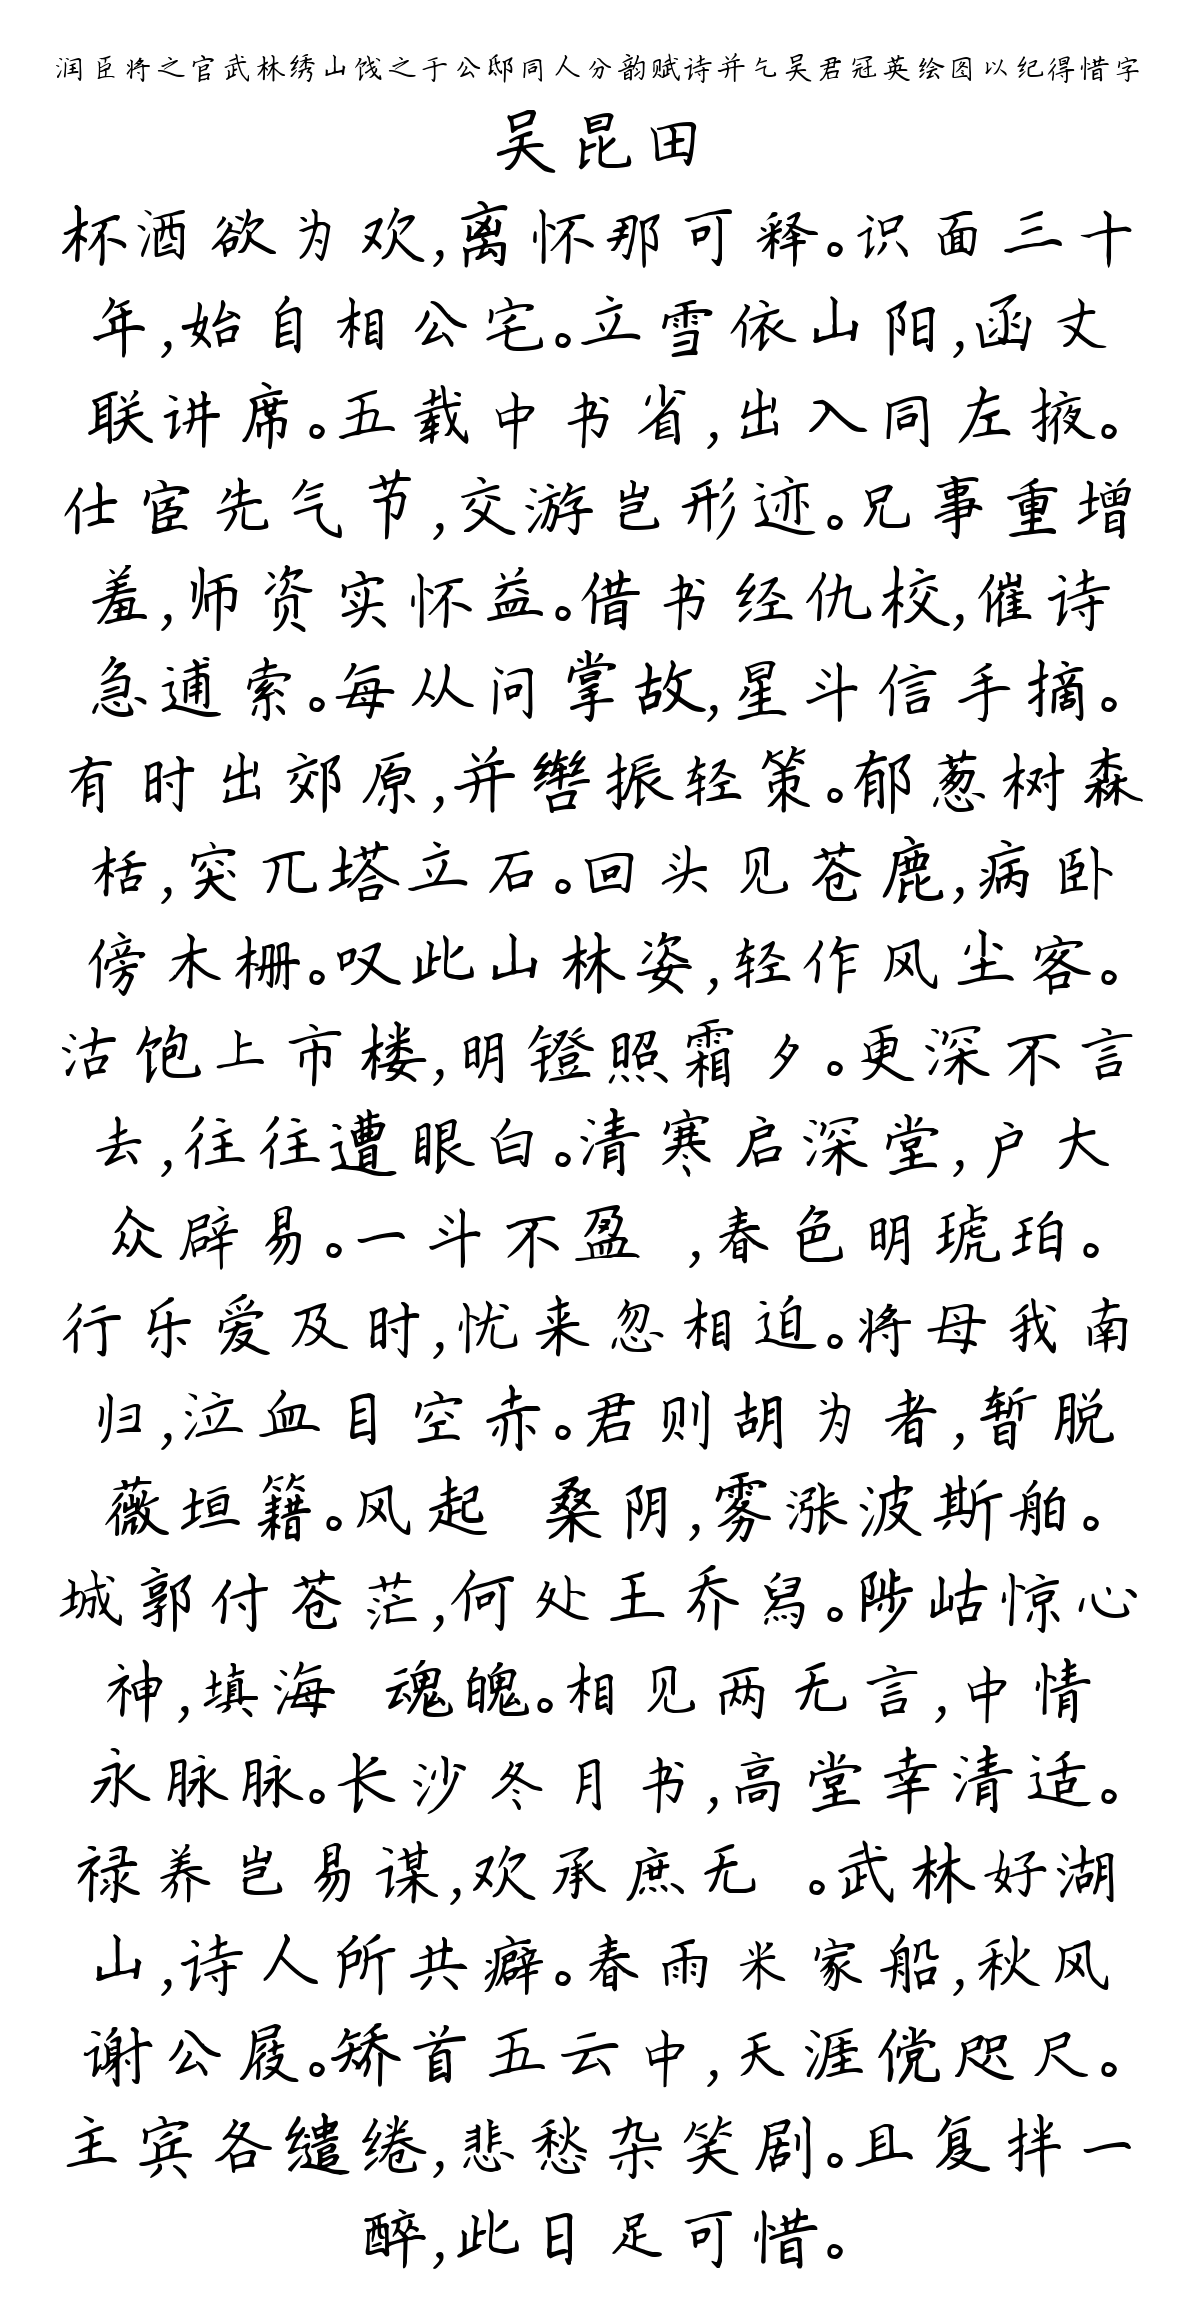 润臣将之官武林绣山饯之于公邸同人分韵赋诗并乞吴君冠英绘图以纪得惜字
吴昆田
杯酒欲为欢,离怀那可释。识面三十
年,始自相公宅。立雪依山阳,函丈
联讲席。五载中书省,出入同左掖。
仕宦先气节,交游岂形迹。兄事重增
羞,师资实怀益。借书经仇校,催诗
急逋索。每从问掌故,星斗信手摘。
有时出郊原,并辔振轻策。郁葱树森
栝,突兀塔立石。回头见苍鹿,病卧
傍木栅。叹此山林姿,轻作风尘客。
沽饱上市楼,明镫照霜夕。更深不言
去,往往遭眼白。清寒启深堂,户大
众辟易。一斗不盈 ,春色明琥珀。
行乐爱及时,忧来忽相迫。将母我南
归,泣血目空赤。君则胡为者,暂脱
薇垣籍。风起 桑阴,雾涨波斯舶。
城郭付苍茫,何处王乔舄。陟岵惊心
神,填海 魂魄。相见两无言,中情
永脉脉。长沙冬月书,高堂幸清适。
禄养岂易谋,欢承庶无 。武林好湖
山,诗人所共癖。春雨米家船,秋风
谢公屐。矫首五云中,天涯傥咫尺。
主宾各缱绻,悲愁杂笑剧。且复拌一
醉,此日足可惜。